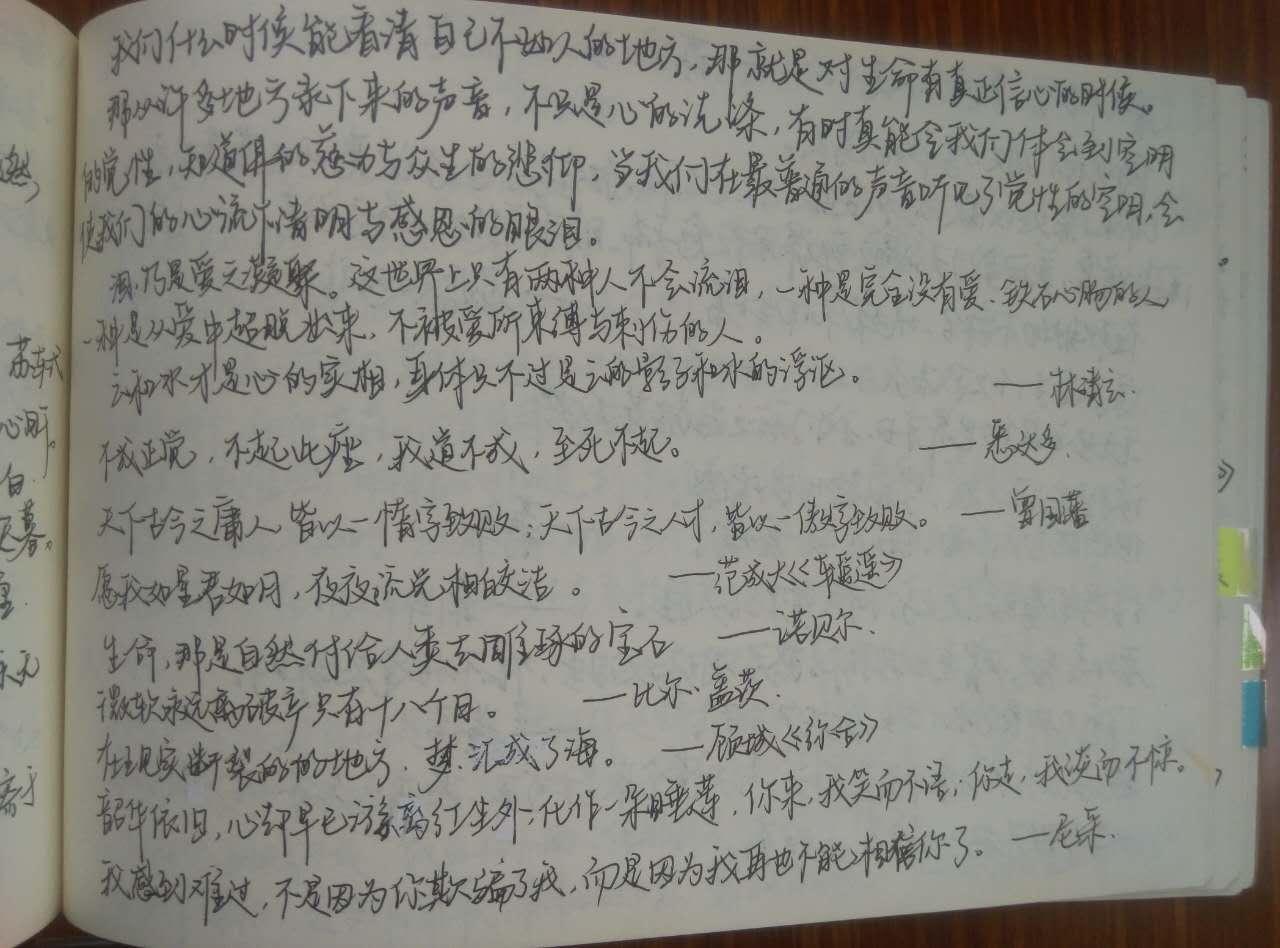 我们什么时候能看清自己不如人的地方，那就是对生命有真正信心的时候。
那从许多地方录下来的声音，不只是心的洗涤，有时真能令我们体会到空明
的觉性，知道佛的慈力与众生的悲仰，当我们在最普通的声音听见了觉性的空明，会
使我们的心流下清明与感恩的眼泪。
泪，乃是爱之凝聚。这世界上只有两种人不会流泪，一种是完全没有爱、铁石心肠的人
一种是从爱中超脱出来，不被爱所束缚与刺伤的人。
云和水才是心的实相，身体只不过是云的影子和水的浮沤。 ——林清玄.
不成正觉，不起此座，我道不成，至死不起。 ——悉达多.
天下古今之庸人，皆以一惰字致败；天下古今之人才，皆以一傲字致败。 ——曾国藩
愿我如星君如月，夜夜流光相皎洁。 ——范成大《车遥遥》
生命，那是自然付给人类去雕琢的宝石 ——诺贝尔.
微软永远离破产只有十八个月。 ——比尔·盖茨.
在现实断裂的地方，梦，汇成了海。 ——顾城《》
韶华依旧，心却早已游离红尘外，化作一朵睡莲，你来，我笑而不语；你走，我淡而不惊。
我感到难过，不是因为你欺骗了我，而是因为我再也不能相信你了。 ——尼采.
然
苏轼
心肝。
白.
暮。